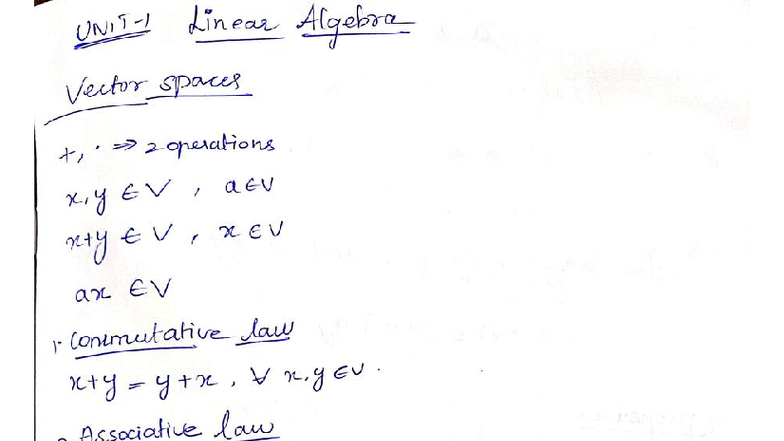 UNIT-1 Linear Algebra
Vector spaces
+, · ⇒ 2 operations
x, y ∈ V , a ∈ V
x+y ∈ V , x ∈ V
ax ∈ V
1. Commutative law
x+y = y+x , ∀ x, y ∈ V.
Associative law